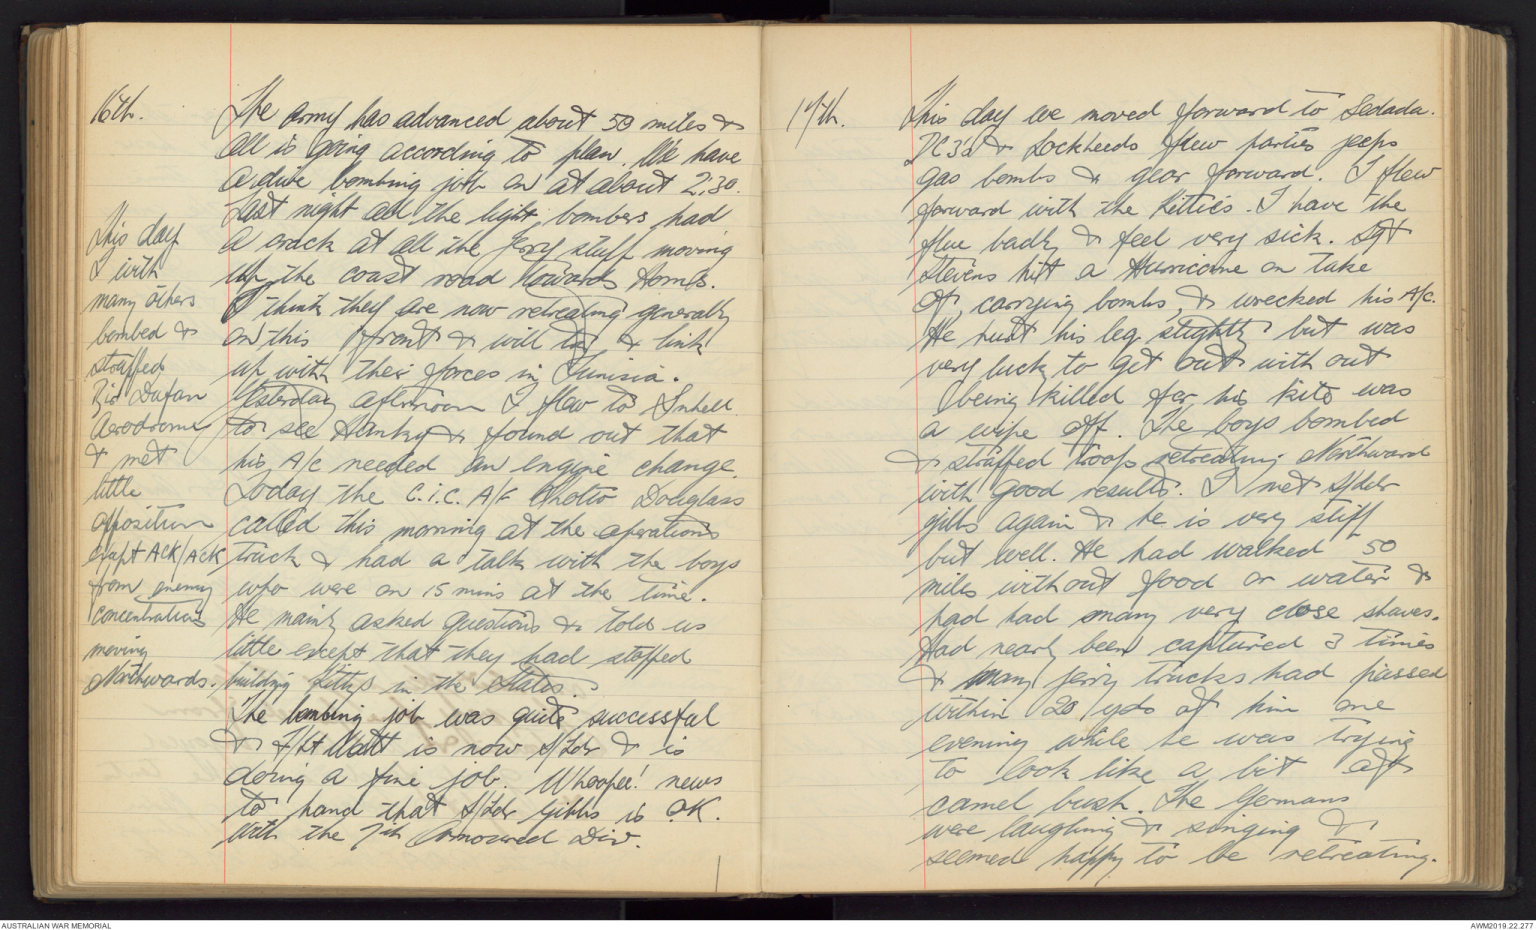 16th.
The army has advanced about 50 miles &
all is going according to plan. We have
a dive bombing job on at about 2.30.
Last night all the light bombers had
a crack at all the jerry stuff moving
up the coast road towards Homs.
I think they are now retreating generally
on this front & will try & link
up with their forces in Tunisia.
Yesterday afternoon I flew to
to see Hanky & found out that
his A/c needed an engine change.
Today the C.i.C. A/F Sholto Douglass
called this morning at the operations
truck & had a talk with the boys
who were on 15 mins at the time.
He mainly asked questions & told us
little except that they had stopped
building Kittys in the States.
The bombing job was quite successful
& F/Lt Watt is now S/Ldr & is
doing a fine job. Whoopee! news
to hand that S/Ldr Gibbs is OK.
with the 7th Armoured Div.
This day
I with
many others
bombed &
straffed
Bir Dufan
Aerodrome
& met
little
opposition
exept ACK/ACK
from enemy
concentrations
moving
Northwards.
17th.
This day we moved forward to Sedada.
DC3s & Lockheeds flew parties jeeps
gas bombs & gear forward. I flew
forward with the Kitties. I have the
flue badly & feel very sick. Sgt
Stevens hit a Hurricane on take
off, carrying bombs, & wrecked his A/c.
He hurt his leg slightly but was
very lucky to get out with out
being killed for his kite was
a wipe off. The boys bombed
& straffed troops retreating Northward
with good results. I met S/Ldr
gibbs again & he is very stiff
but well. He had walked 50
miles without food or water &
had had many very close shaves.
Had nearly been captured 3 times
& many jerry trucks had passed
within 20 yds of him one
evening while he was trying
to look like a bit of
camel bush. The Germans
were laughing & singing &
seemed happy to be retreating.
AUSTRALIAN WAR MEMORIAL
AWM2019.22.277